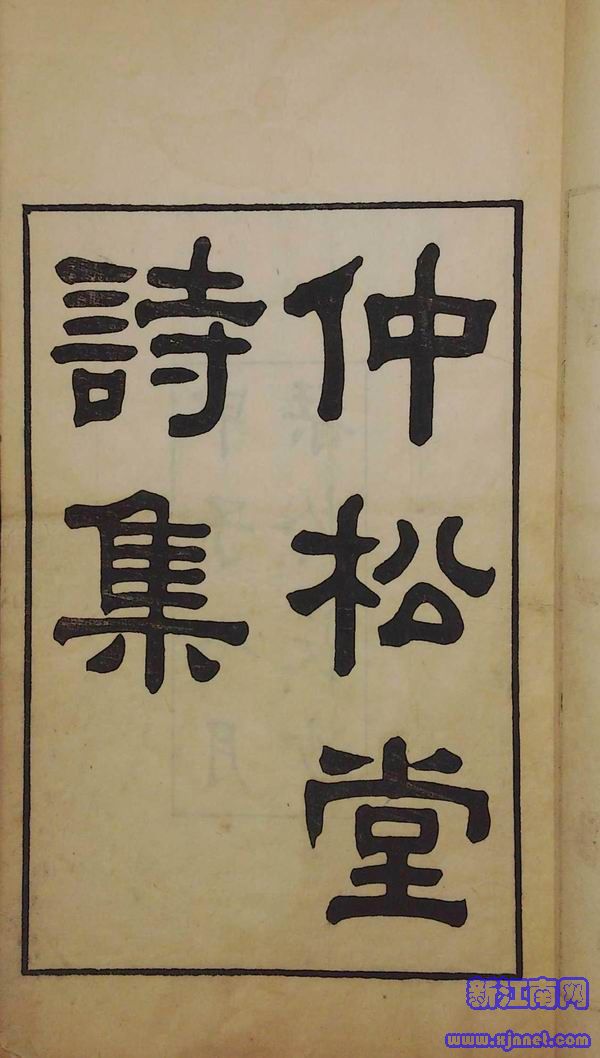 仲松堂
詩集
新江南网
www.xjnnet.com